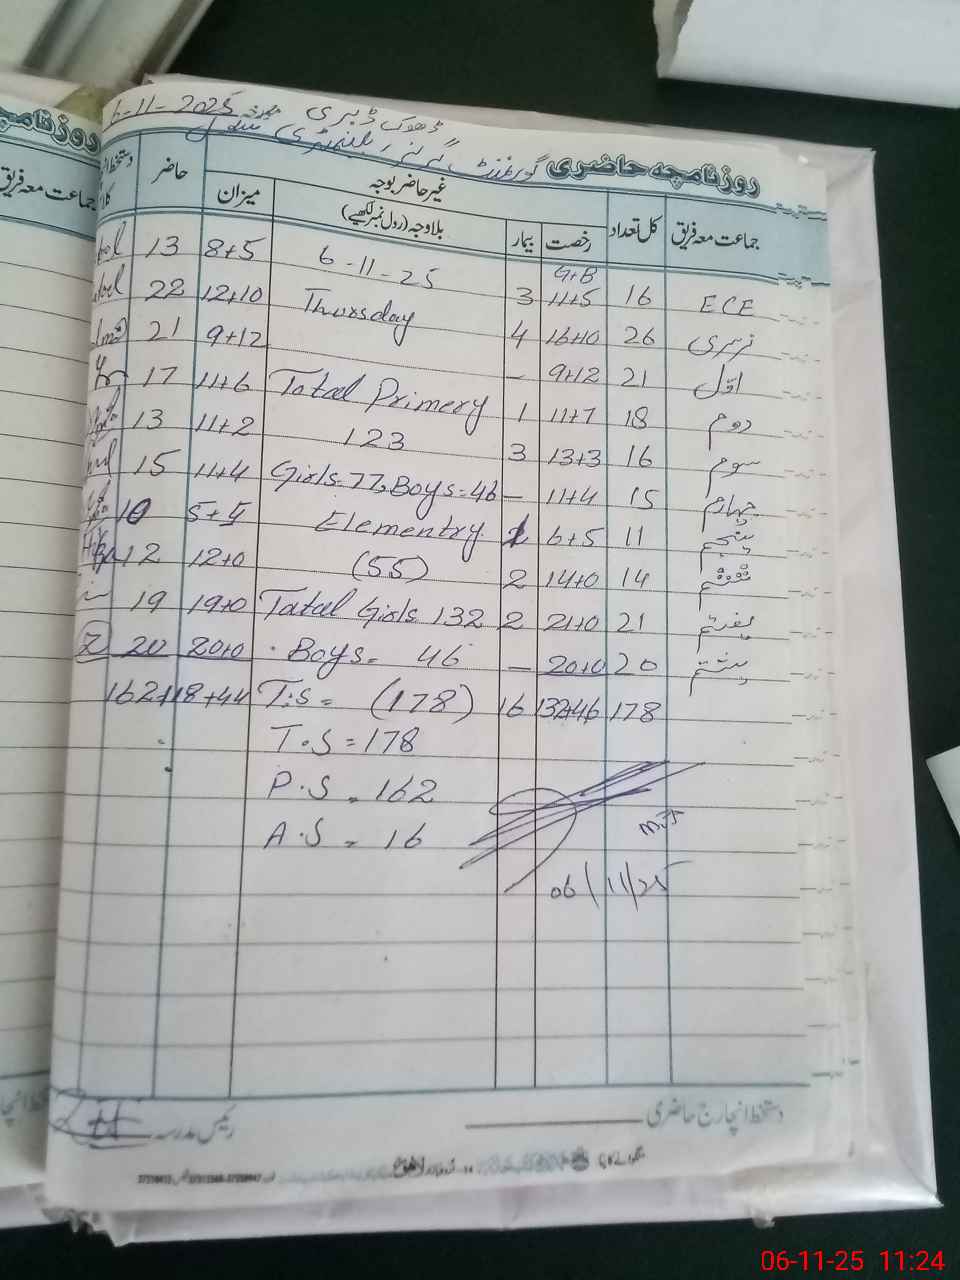 6-11-2025 ڈھوک ڈبری
روزنامچہ حاضری گورنمنٹ گرلز ایلیمنٹری سکول
جماعت معہ فریق کل تعداد غیر حاضر بوجہ میزان حاضر دستخط
رخصت بیمار بلاوجہ (رول نمبر لکھیے)
G+B
ECE 16 11+5 3 6-11-25 8+5 13
نرسری 26 16+10 4 Thursday 12+10 22
اوّل 21 9+12 - 9+12 21
دوم 18 11+7 1 Total Primery 11+6 17
سوم 16 13+3 3 123 11+2 13
چہارم 15 11+4 - Girls=77, Boys=46 11+4 15
پنجم 11 6+5 1 Elementry 5+5 10
ششم 14 14+0 2 (55) 12+0 12
ہفتم 21 21+0 2 Total Girls 132 19+0 19
ہشتم 20 20+0 - Boys= 46 20+0 20
178 132+46 16 T.S = (178) 118+44 162
T.S = 178
P.S = 162
A.S = 16
06/11/25
دستخط انچارج حاضری رئیس مدرسہ
06-11-25 11:24